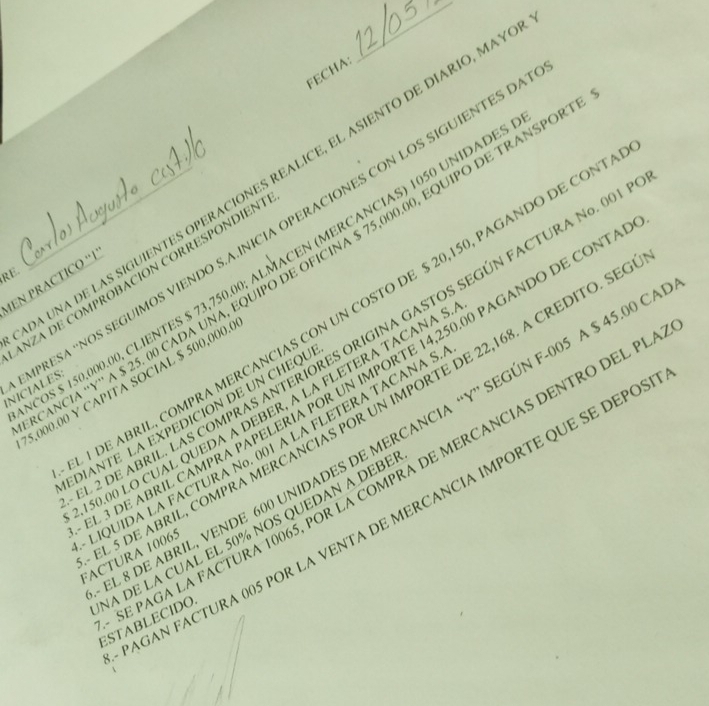 FECHA: 12/05/
RE. Carlos Augusto castillo
AMEN PRACTICO "I"
OR CADA UNA DE LAS SIGUIENTES OPERACIONES REALICE, EL ASIENTO DE DIARIO, MAYOR Y
ALANZA DE COMPROBACION CORRESPONDIENTE.
LA EMPRESA "NOS SEGUIMOS VIENDO S.A.INICIA OPERACIONES CON LOS SIGUIENTES DATOS
INICIALES:
BANCOS $ 150,000.00, CLIENTES $ 73,750.00; ALMACEN (MERCANCIAS) 1050 UNIDADES DE
MERCANCIA "Y" A $ 25. 00 CADA UNA, EQUIPO DE OFICINA $ 75,000.00, EQUIPO DE TRANSPORTE $
175,000.00 Y CAPITA SOCIAL $ 500,000.00
1.- EL 1 DE ABRIL, COMPRA MERCANCIAS CON UN COSTO DE $ 20,150, PAGANDO DE CONTADO
MEDIANTE LA EXPEDICION DE UN CHEQUE.
2.- EL 2 DE ABRIL, LAS COMPRAS ANTERIORES ORIGINA GASTOS SEGÚN FACTURA No. 001 POR
$ 2,150.00 LO CUAL QUEDA A DEBER, A LA FLETERA TACANA S.A.
3.- EL 3 DE ABRIL CAMPRA PAPELERIA POR UN IMPORTE 14,250.00 PAGANDO DE CONTADO.
4.- LIQUIDA LA FACTURA No. 001 A LA FLETERA TACANA S.A.
5.- EL 5 DE ABRIL, COMPRA MERCANCIAS POR UN IMPORTE DE 22,168. A CREDITO. SEGÚN
FACTURA 10065
6.- EL 8 DE ABRIL, VENDE 600 UNIDADES DE MERCANCIA "Y" SEGÚN F-005 A $ 45.00 CADA
UNA DE LA CUAL EL 50% NOS QUEDAN A DEBER.
7.- SE PAGA LA FACTURA 10065, POR LA COMPRA DE MERCANCIAS DENTRO DEL PLAZO
ESTABLECIDO.
8.- PAGAN FACTURA 005 POR LA VENTA DE MERCANCIA IMPORTE QUE SE DEPOSITA